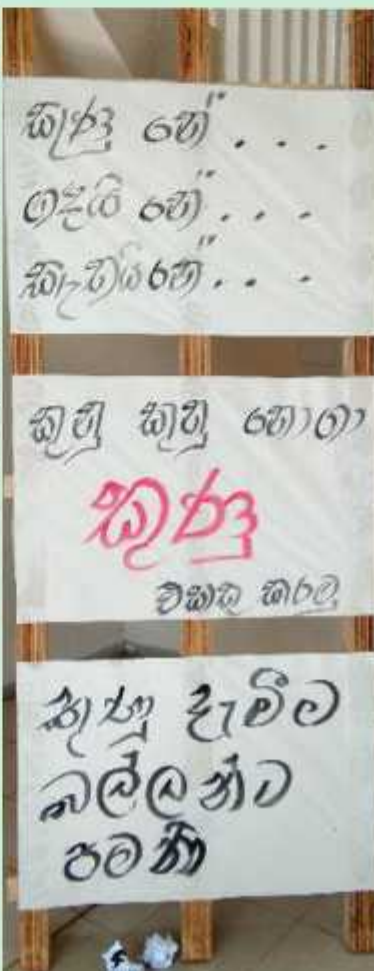 කුණු නේ" . . .
ගඳයි නේ" . . .
කැතයි නේ" . . .
කුනු කුනු නොගා
කුණු
එකතු කරමු
කුණු දැමීම
බල්ලන්ට
පමණි